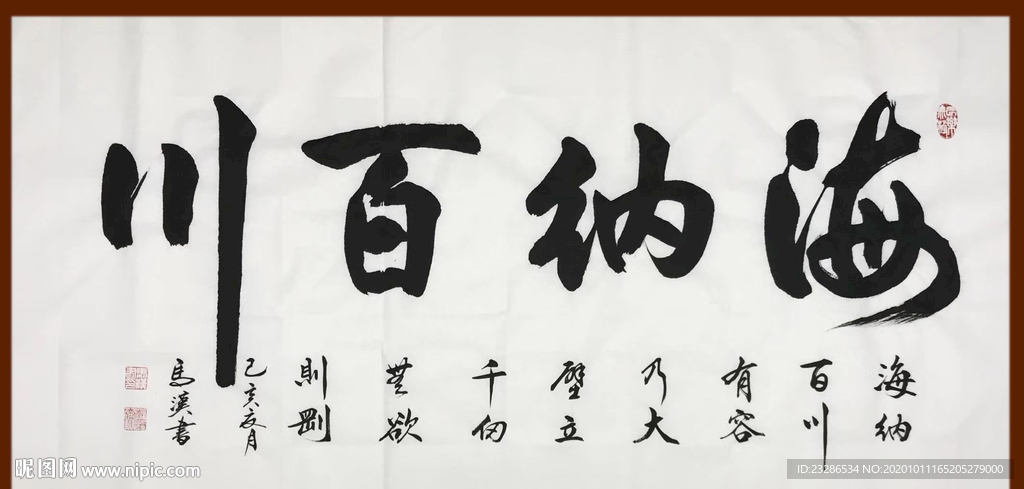 海納百川
海納
百川
有容
乃大
壁立
千仞
無欲
則剛
己亥夏月
馬漢書
昵图网 www.nipic.com
ID:23286534 NO:20201011165205279000